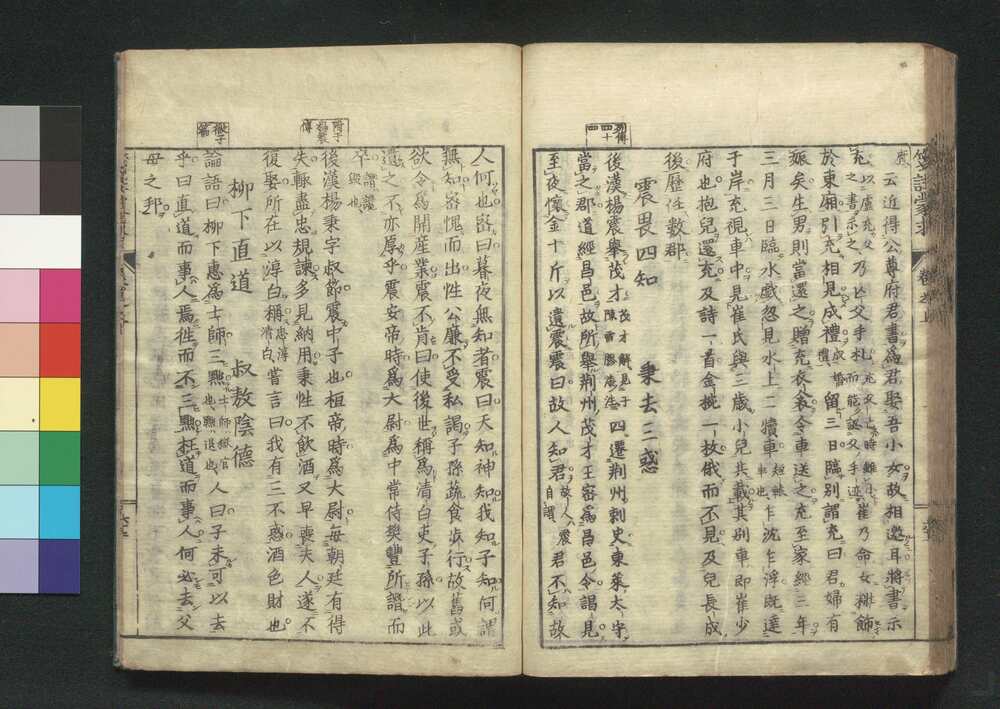 云近得公尊府君書爲君娶吾小女故相邀耳將書示
充以盧充父乃亡父手札崔乃命女粧飾
於東廂引充相見成禮留三日臨別謂充曰君婦有
娠矣生男則當還之贈充衣衾令車送之充至家經三年
三月三日臨水戯忽見水上二犢車乍沈乍浮既達
于岸充視車中見崔氏與三歲小兒共載其別車即崔少
府也抱兒還充及詩一首金鋺一枚俄而不見及兒長成
後歷任數郡
震畏四知 秉去三惑
別傳四十四
後漢楊震舉茂才四遷荆州刺史東莱太守
當之郡道經昌邑故所舉荆州茂才王密爲昌邑令謁見
至夜懷金十斤以遺震震曰故人知君故人震自謂君不知故
人何也密曰暮夜無知者震曰天知神知我知子知何謂
無知密愧而出性公廉不受私謁子孫蔬食歩行故舊或
欲令爲開産業震不肯曰使後世稱爲清白吏子孫以此
遺之不亦厚乎震安帝時爲大尉爲中常侍樊豐所譖而
卒謂譖毀也
附于楊震傳
後漢楊秉字叔節震中子也桓帝時爲大尉毎朝廷有得
失輒盡忠規諫多見納用秉性不飲酒又早喪夫人遂不
復娶所在以淳白稱忠淳清白嘗言曰我有三不惑酒色財也
柳下直道 叔敖陰德
微子篇
論語曰柳下惠爲士師三黜士師獄官也黜退也人曰子未可以去
乎曰直道而事人焉徃而不三黜枉道而事人何必去父
母之邦